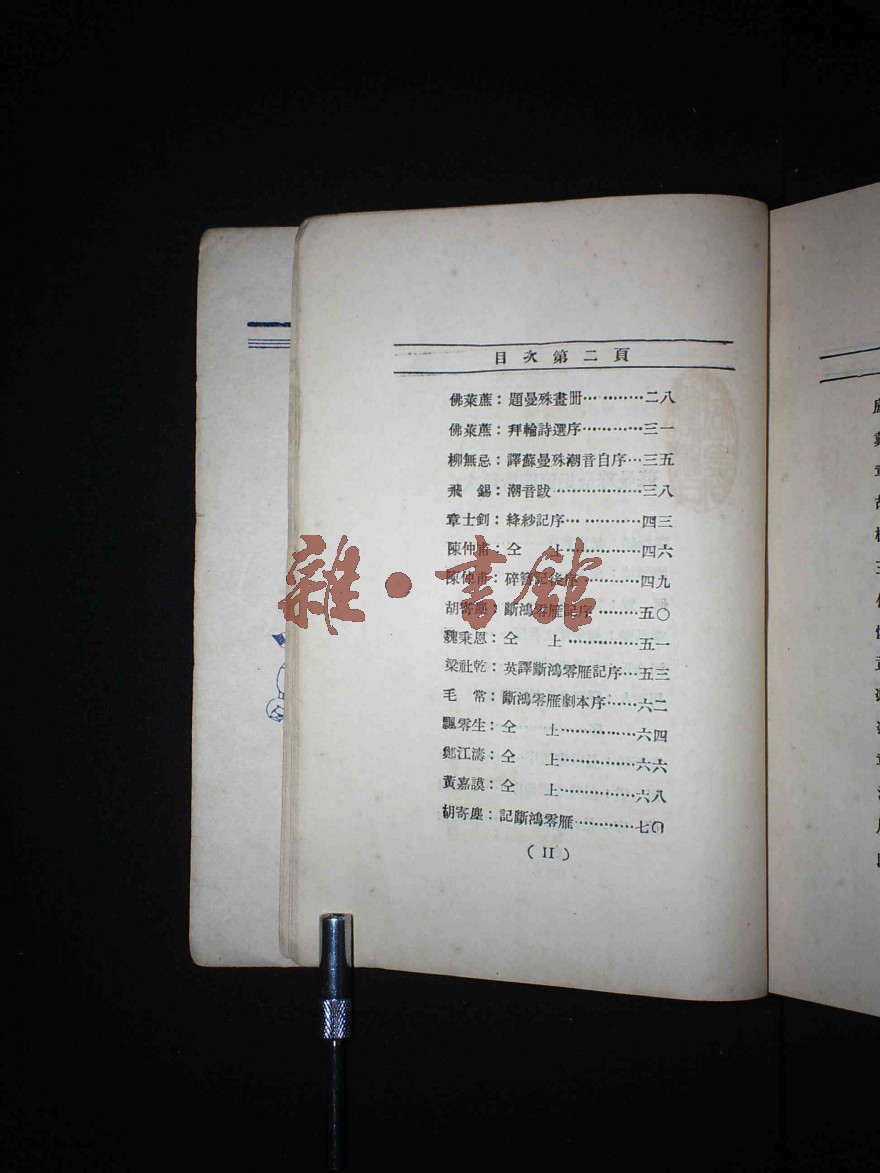 目次第二頁
佛萊蔗：題曼殊畫册…………二八
佛萊蔗：拜輪詩選序…………三一
柳無忌：譯蘇曼殊潮音自序…三五
飛　錫：潮音跋………………三八
章士釗：絳紗記序……………四三
陳仲甫：仝　　上……………四六
陳仲甫：碎簪記後序…………四九
胡寄塵：斷鴻零雁記序………五〇
魏秉恩：仝　　上……………五一
梁社乾：英譯斷鴻零雁記序…五三
毛　常：斷鴻零雁劇本序……六二
飄零生：仝　　上……………六四
鄭江濤：仝　　上……………六六
黃嘉謨：仝　　上……………六八
胡寄塵：記斷鴻零雁…………七〇
（II）
雜·書館